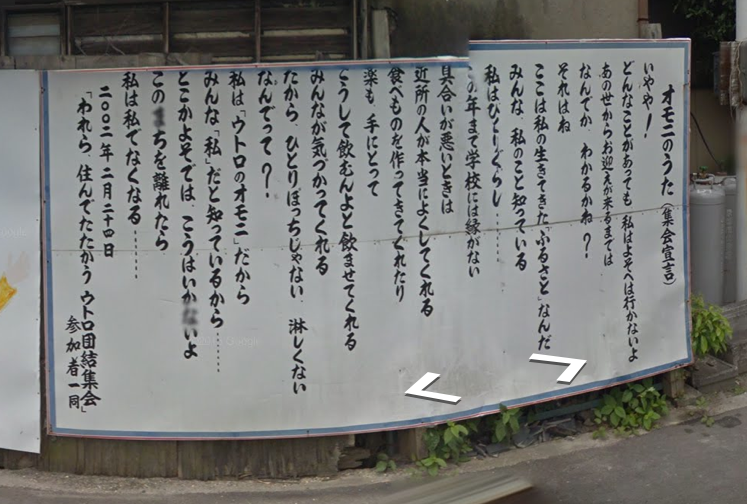 オモニのうた（集会宣言）
いやや！
どんなことがあっても 私はよそへは行かないよ
あの世からお迎えが来るまでは
なんでか、わかるかね？
それはね
ここは私の生きてきた「ふるさと」なんだ
みんな、私のこと知っている
私はひとりぐらし……
の年まで学校には縁がない
具合いが悪いときは
近所の人が本当によくしてくれる
食べものを作ってきてくれたり
薬も、手にとって
こうして飲むんよと飲ませてくれる
みんなが気づかってくれる
だから、ひとりぼっちじゃない、淋しくない
なんでって？
私は「ウトロのオモニ」だから
みんな「私」だと知っているから……
とこかよそでは、こうはいかないよ
このまちを離れたら
私は私でなくなる……
二〇〇二年二月二十四日
「われら、住んでたたかう ウトロ団結集会」
参加者一同
Google